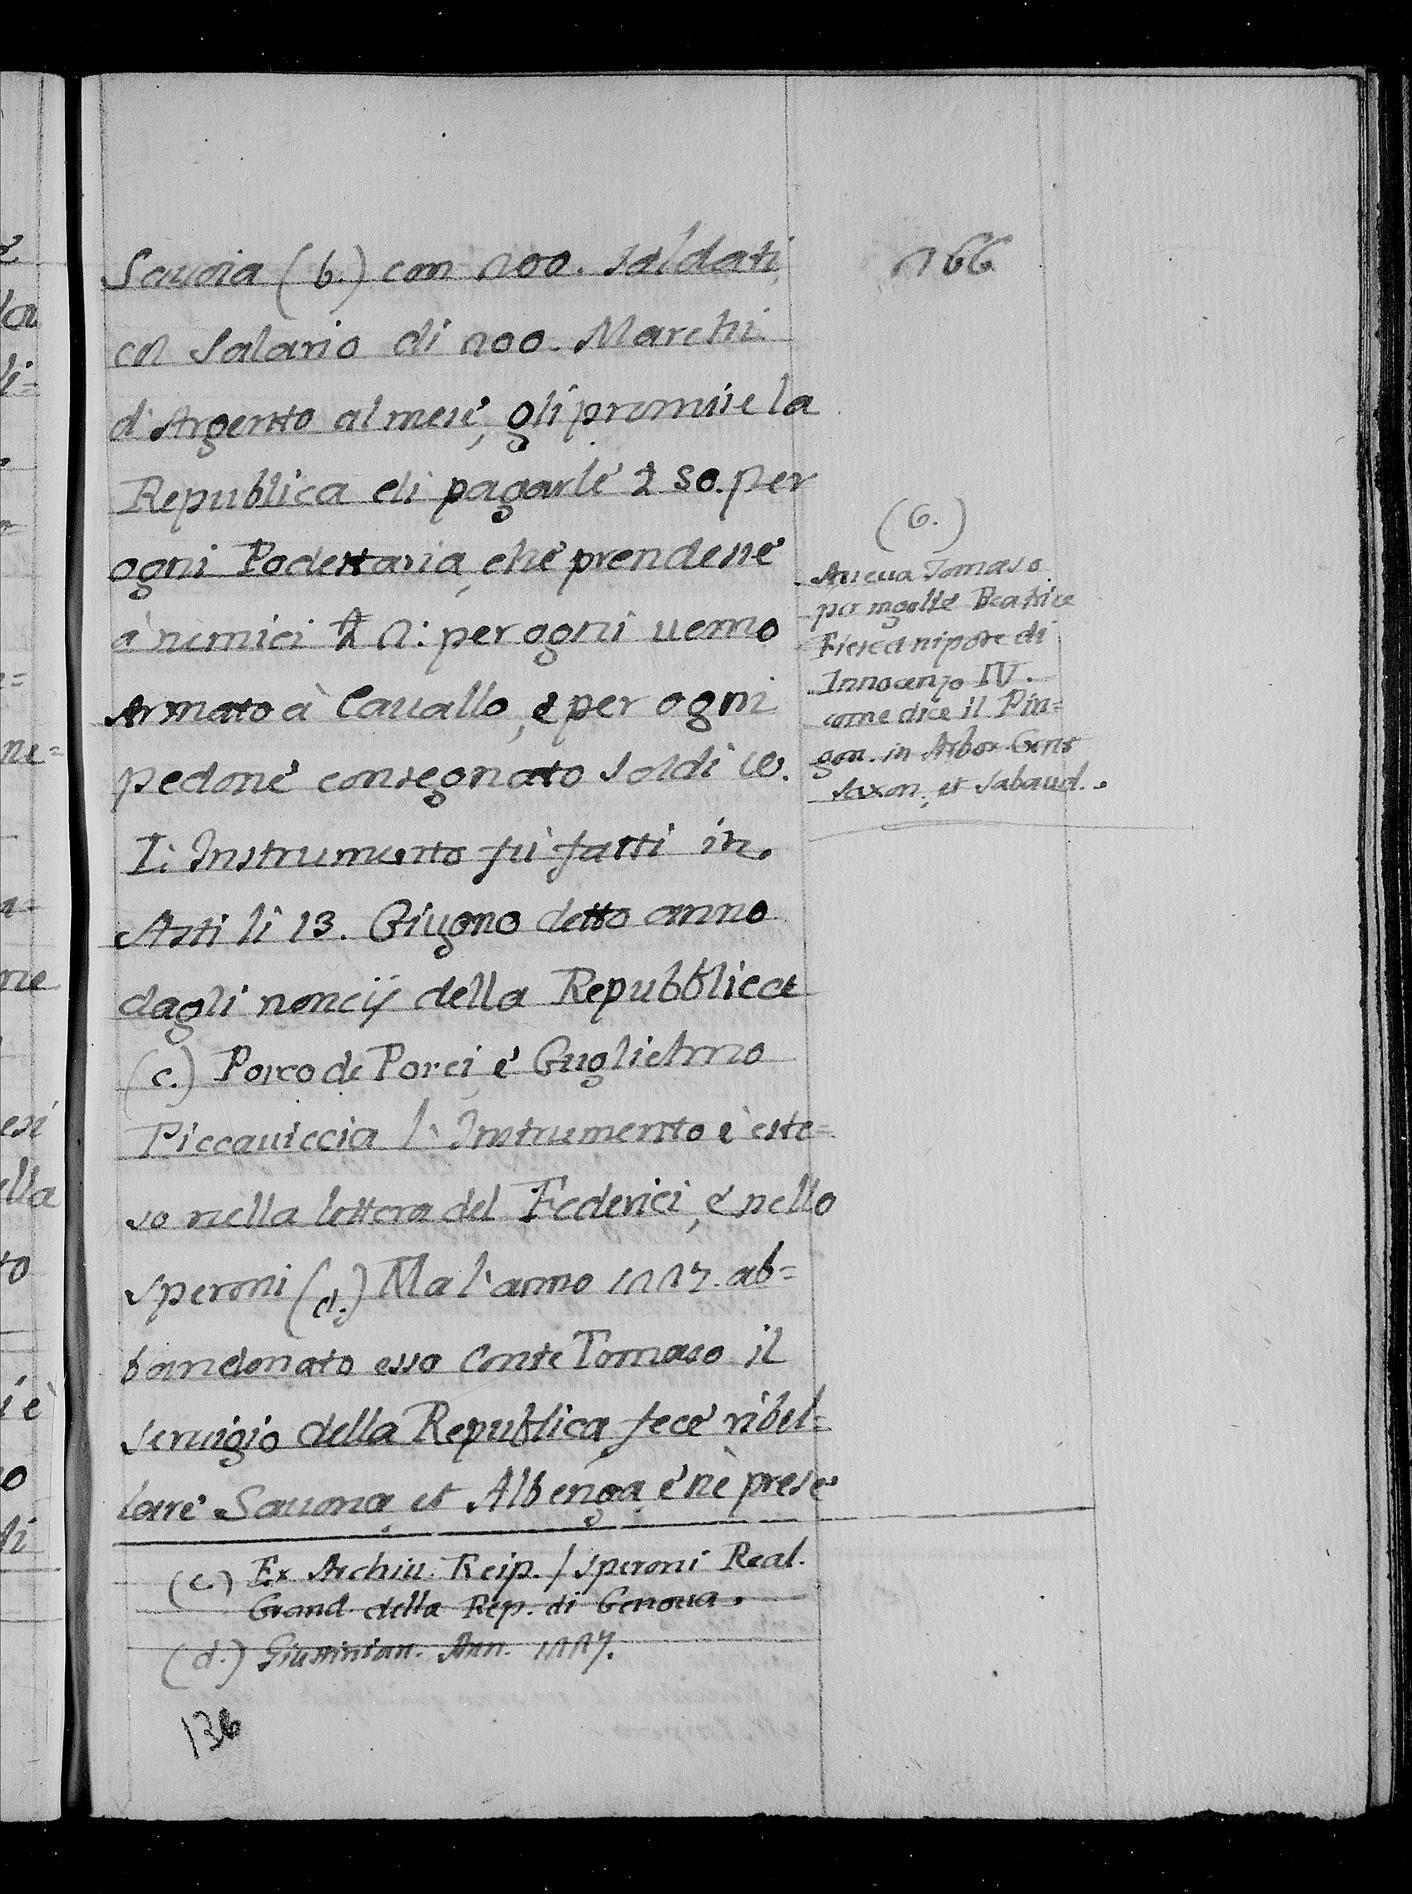 266
Sauoia (b.) con 200. soldati
col Salario di 200. Marchi
d'Argento al mese, gli promise la
Republica di pagarle £ 50. per
ogni Podestaria, che prendesse
à nemici £ 2: per ogni uomo
Armato à Cauallo, e per ogni
pedone consegnato soldi
L'Instrumento fù fatti in
Asti li 13. Giugno detto anno
dagli noncij della Repubblica
(c.) Porco de Porci, e Guglielmo
Piccauiccia l'Instrumento è este=
so nella lettera del Federici, e nello
Speroni (d.) Ma l'anno 1227. ab=
bandonato esso Conte Tomaso il
seruigio della Republica, fece ribel=
lare Sauona, et Albenga, e nè prese
(b.)
Aueua Tomaso
per moglie Beatrice
Fiesca nipote di
Innocenzo IV.
come dice il Pin=
gon. in Arbor Gent
Saxon, et Sabaud.
(c.) Ex Archiu. Reip. / Speroni Real.
Grand. della Rep. di Genoua.
(d.) Giustinian. Ann. 1227.
136